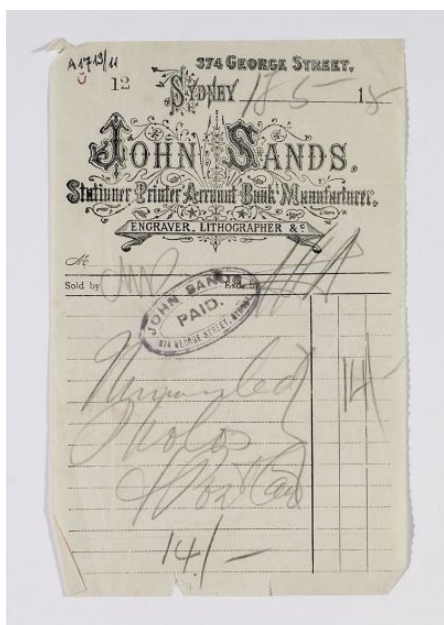 A1713/11
12
374 GEORGE STREET,
SYDNEY 18 5 18
JOHN SANDS,
Stationer Printer Account Book Manufacturer,
ENGRAVER, LITHOGRAPHER & C
M
Sold by Exd. by
JOHN SANDS
PAID.
374 GEORGE STREET, SYDNEY
Unmounted 14/-
Photos
14/-